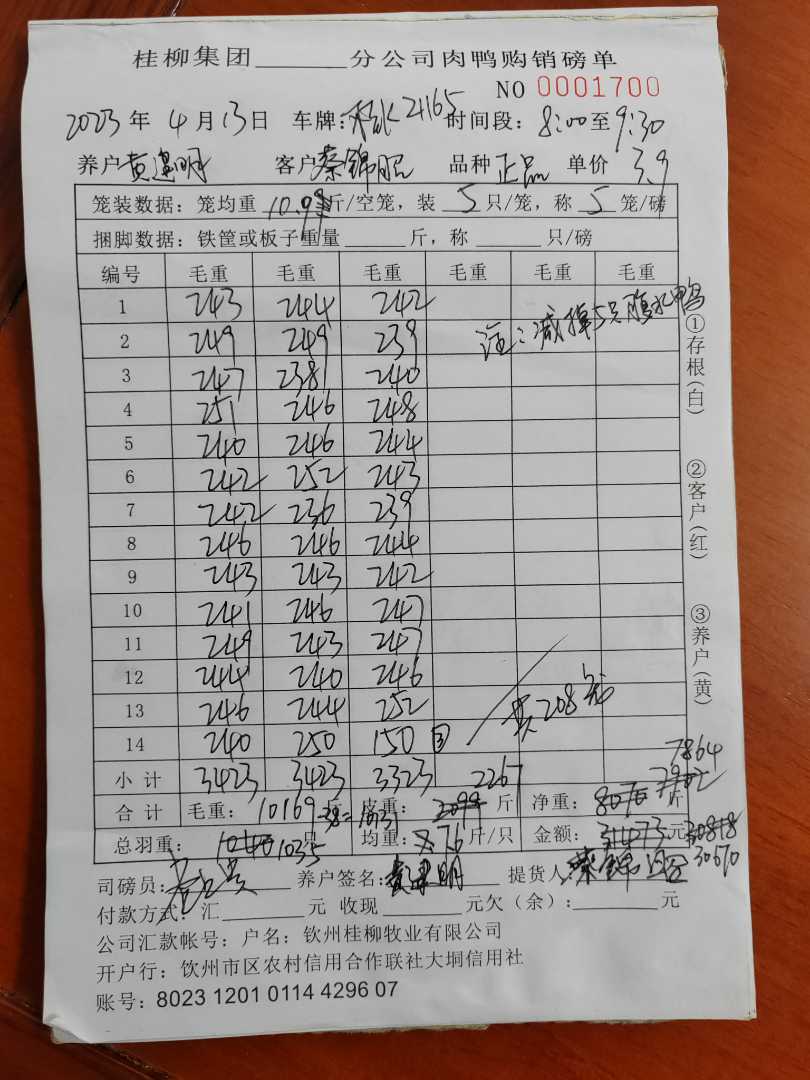 桂柳集团______分公司肉鸭购销磅单
NO 0001700
2023年 4月13日 车牌: 21165 时间段: 8:00至9:30
养户 黄 明 客户 蔡锦 品种 正品 单价 3.9
笼装数据: 笼均重 10.9 斤/空笼, 装 5 只/笼, 称 5 笼/磅
捆脚数据: 铁筐或板子重量______斤, 称______只/磅
编号 毛重 毛重 毛重 毛重 毛重 毛重
1 243 244 242
注:减掉5只腹水鸭
2 249 249 239
3 247 238 240
4 251 246 248
5 240 246 244
6 242 252 243
7 242 236 239
8 246 246 244
9 243 243 242
10 241 246 247
11 249 243 247
12 244 240 246
13 246 244 252
共208笼
14 240 250 150 ③
小计 3423 3423 3323 2267
7864
合计 毛重: 10169 斤 皮重: 2099 斤 净重: 8070 斤
总羽重: 1040 1035 只 均重: 7.76 斤/只 金额: 31473 元 30818
30670
司磅员: 养户签名: 黄 明 提货人: 蔡锦
付款方式: 汇______元 收现______元欠(余):______元
公司汇款帐号: 户名: 钦州桂柳牧业有限公司
开户行: 钦州市区农村信用合作联社大垌信用社
账号: 8023 1201 0114 4296 07
①存根(白)
②客户(红)
③养户(黄)